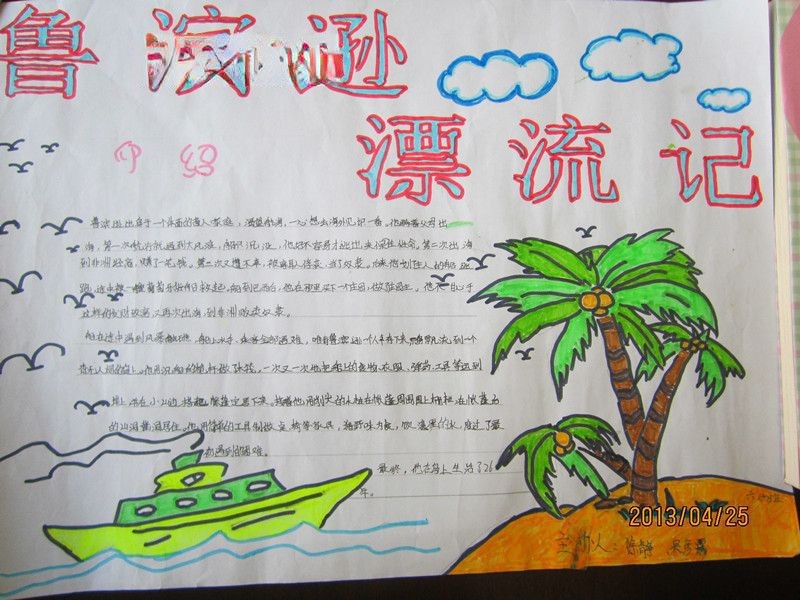 鲁滨逊
漂流记
介绍
鲁滨逊出身于一个体面的商人家庭，渴望航海，一心想去海外见识一番。他瞒着父亲出
海，第一次航行就遇到大风浪，船只沉没，他好不容易才逃出来保住性命。第二次出海
到非洲经商，赚了一笔钱。第三次又遭不幸，被摩尔人俘获，当了奴隶。后来他划了主人的小船逃
跑，途中被一艘葡萄牙货船救起。船到巴西后，他在那里买下一个庄园，做了庄园主。他不甘心于
这样的发财致富，又再次出海，到非洲贩卖奴隶。
船在途中遇到风暴触礁，船上水手、乘客全部遇难，唯有鲁滨逊一个人幸存下来，只身飘流到一个
杳无人烟的岛上。他用沉船的桅杆做了木筏，一次又一次地把船上的食物、衣服、弹药、工具等运到
岸上，并在小山边搭起帐篷定居下来。接着他用削尖的木桩在帐篷周围围上栅栏，在帐篷后
的山洞居住。他用简单的工具制做桌、椅等家具，猎野味为食，饮溪里的水，度过了最
初遇到的困难。
最终，他在岛上生活了26
年。
2013/04/25
主办人：